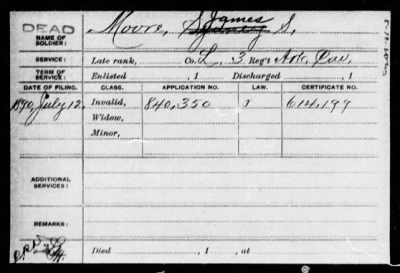 DEAD
NAME OF SOLDIER:
Moore, James S.
SERVICE:
Late rank, Co. L, 3 Reg't Ark. Cav.
TERM OF SERVICE:
Enlisted , 1 Discharged , 1
DATE OF FILING. CLASS. APPLICATION NO. LAW. CERTIFICATE NO.
1890, July 12. Invalid, 840,350 614,199
Widow,
Minor,
ADDITIONAL SERVICES:
REMARKS:
Died , 1 , at